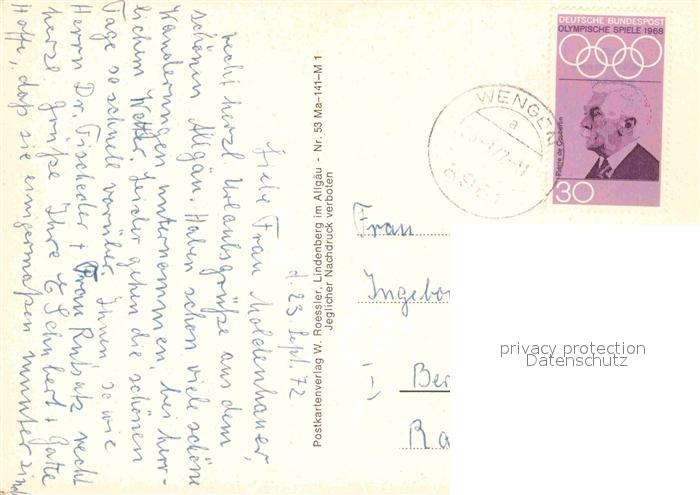 d. 23. Sept. 72
Liebe Frau Moldenhauer,
recht herzl. Urlaubsgrüße aus dem
schönen Allgäu. Haben schon viele schöne
Wanderungen unternommen, bei herr-
lichem Wetter. Leider gehen die schönen
Tage so schnell vorüber. Ihnen sowie
Herrn Dr. Tischeder + Frau Rubsatz recht
herzl. Grüße Ihre E. Schubert + Gatte
Hoffe, daß sie einigermaßen munter sind
Postkartenverlag W. Roessler, Lindenberg im Allgäu - Nr. 53 Ma-141-M 1
Jeglicher Nachdruck verboten
DEUTSCHE BUNDESPOST
OLYMPISCHE SPIELE 1968
Pierre de Coubertin
30
WENGEN
a
8961
Frau
Ingebo
1
Ber
Ra
privacy protection
Datenschutz